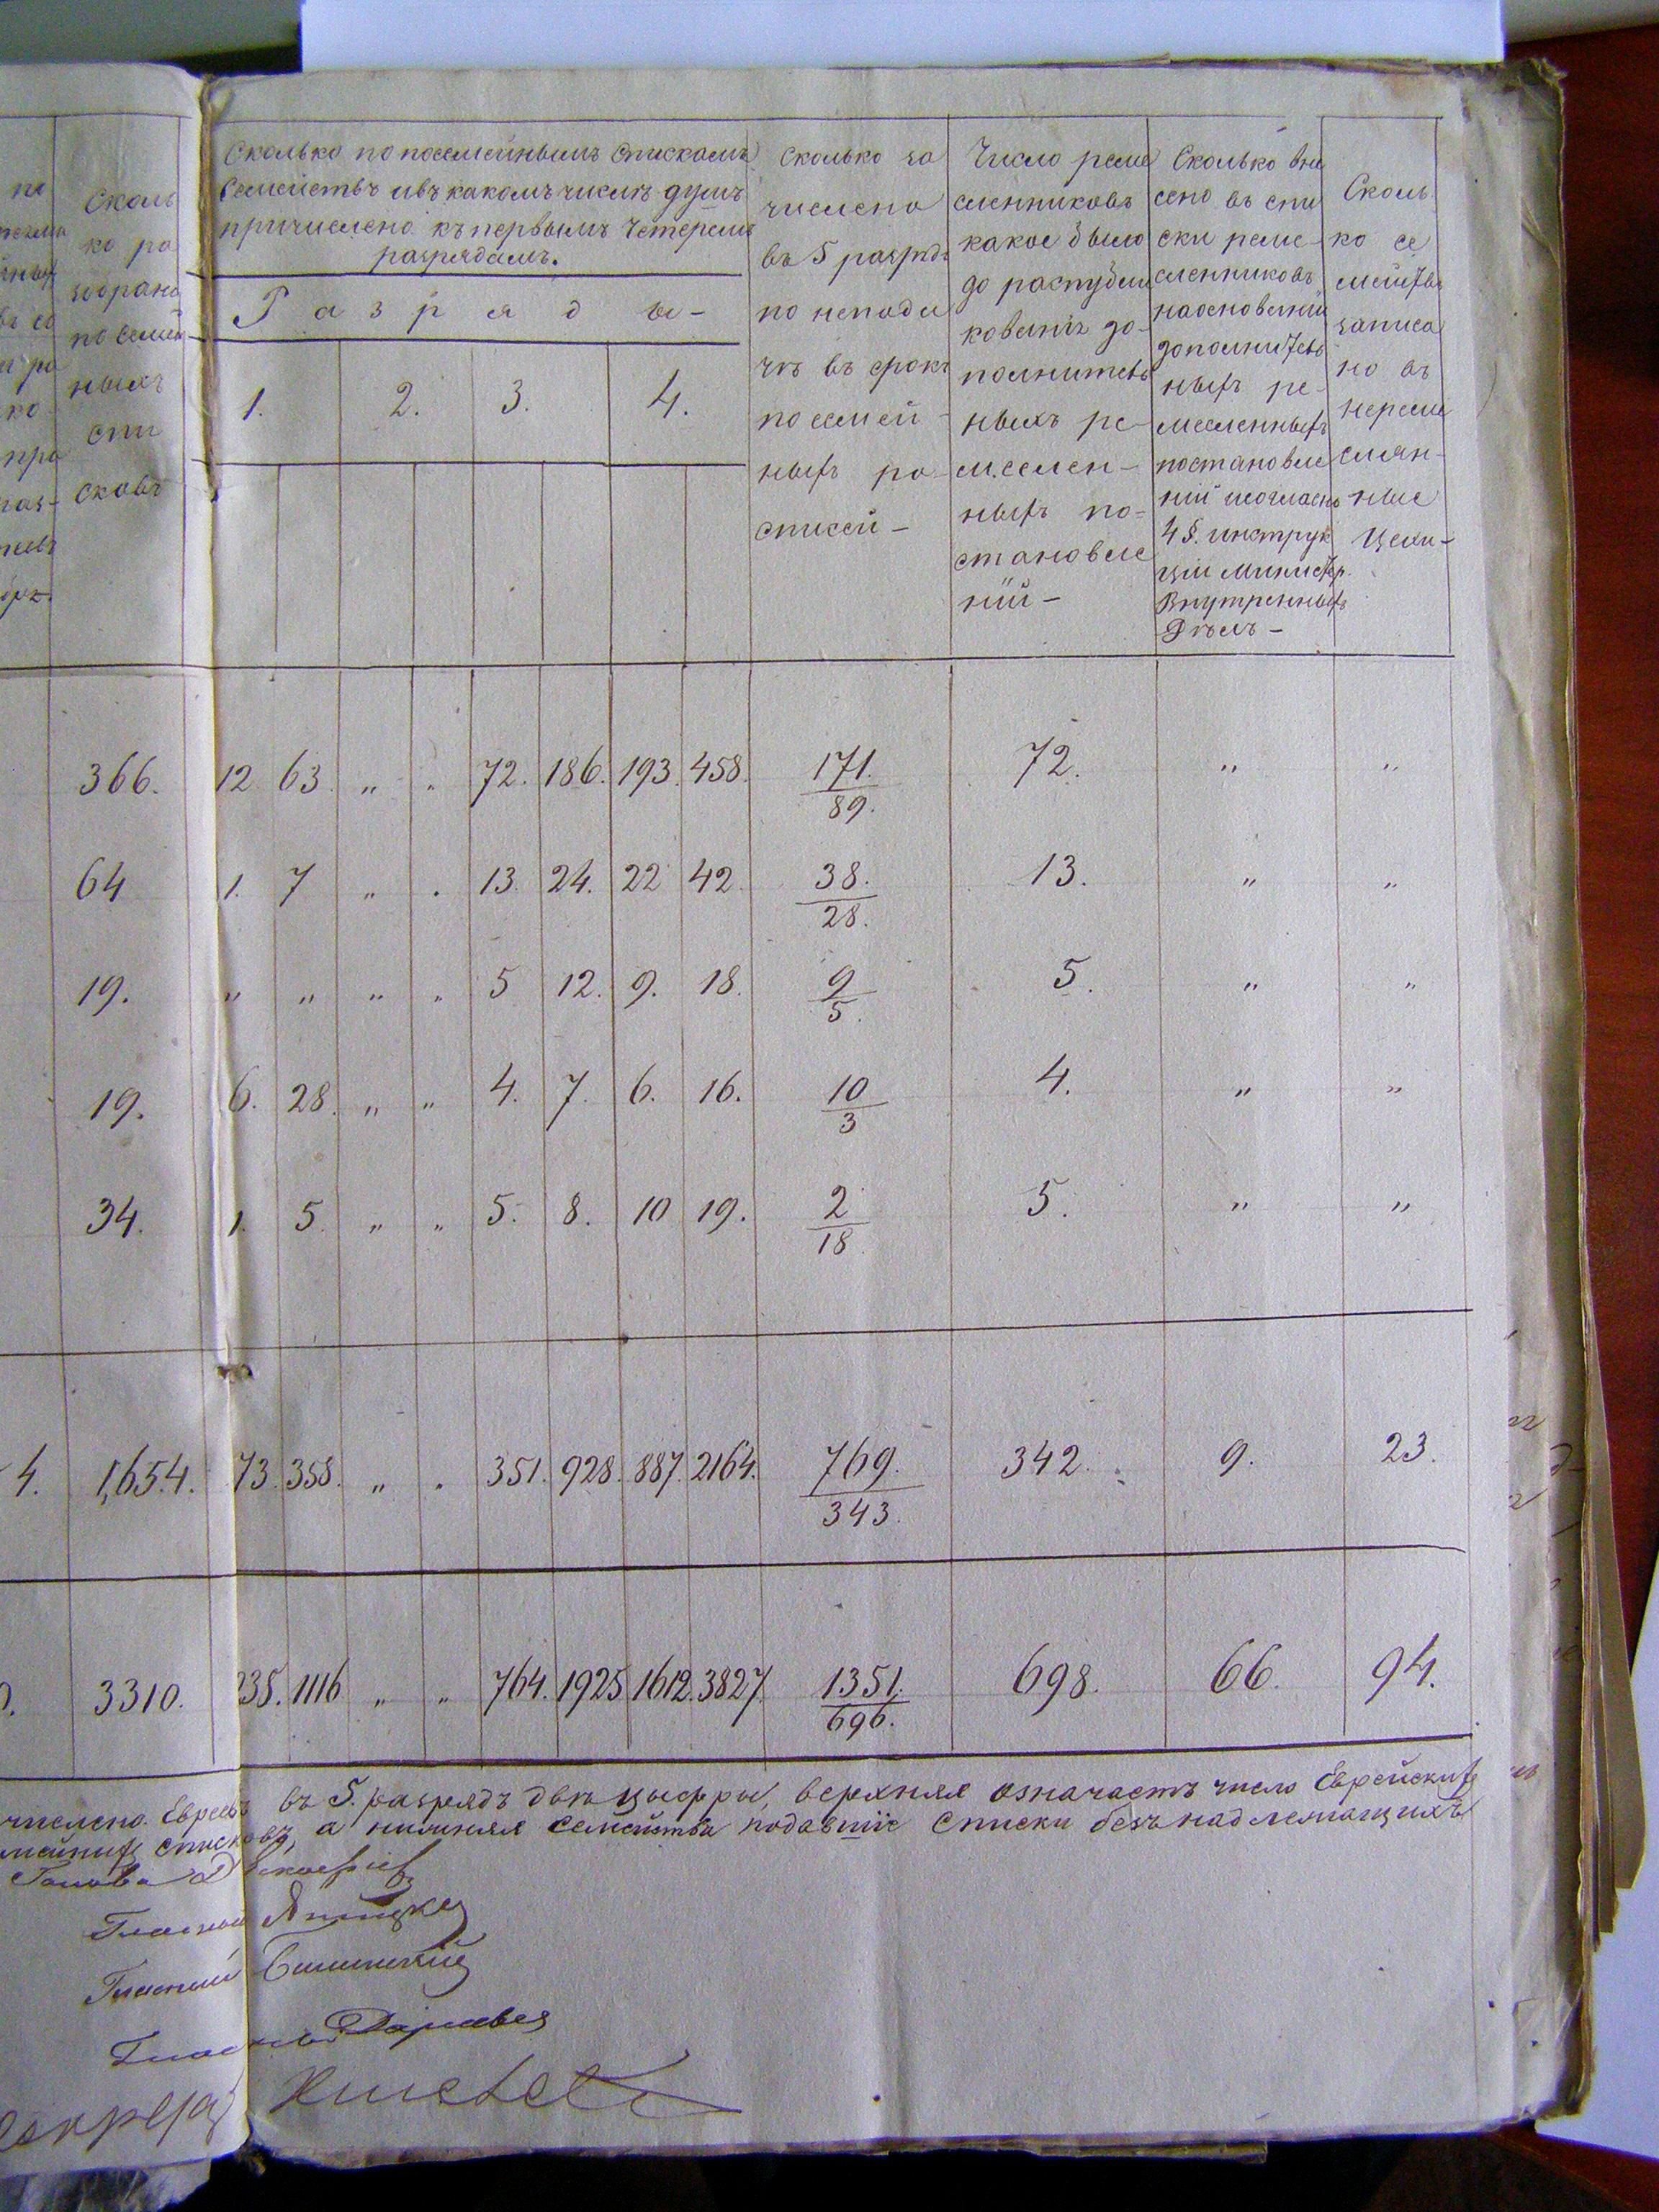 Сколь
ко ра
зобрано
по семей
ныхъ
спи
сковъ
Сколько по посемейнымъ спискамъ
Семействъ и въ какомъ числѣ душъ
причислено къ первымъ четеремъ
разрядамъ.
Разряды-
1. 2. 3. 4.
Сколько за
числено
въ 5 разрядъ
по непода
чѣ въ срокъ
посемей-
ныхъ ро-
списей-
Число реме
сленниковъ
какое было
до распубли
кованія до-
полнитель
ныхъ ре-
меслен-
ныхъ по-
становле
ній-
Сколько вне
сено въ спи
ски реме-
сленниковъ
на основаніи
дополнитель
ныхъ ре-
месленныхъ
постановле
ній и согласно
4 §. инструк
ціи Министер.
Внутренныхъ
Дѣлъ-
Сколь
ко се
мействъ
записа
но въ
нереме
слен-
ные
Цехи-
366. 12 63 „ „ 72. 186. 193. 458. 171. 72. „ „
89.
64 1. 7 „ „ 13. 24. 22 42. 38. 13. „ „
28.
19. „ „ „ „ 5 12. 9. 18. 9 5. „ „
5.
19. 6. 28. „ „ 4. 7. 6. 16. 10 4. „ „
3
34. 1. 5. „ „ 5. 8. 10 19. 2 5. „ „
18.
4. 1,654. 73. 358. „ „ 351. 928. 887. 2164. 769. 342. 9. 23.
343.
0. 3310. 235. 1116 „ „ 764. 1925 1612. 3827. 1351. 698. 66. 94.
696.
числено Евреевъ въ 5. разрядъ двѣ цыфры, верхняя означаетъ число Еврейскихъ
списковъ, а нижняя семейства подавшіе списки безъ надлежащихъ
Голова
Гласный
Гласный
Гласный